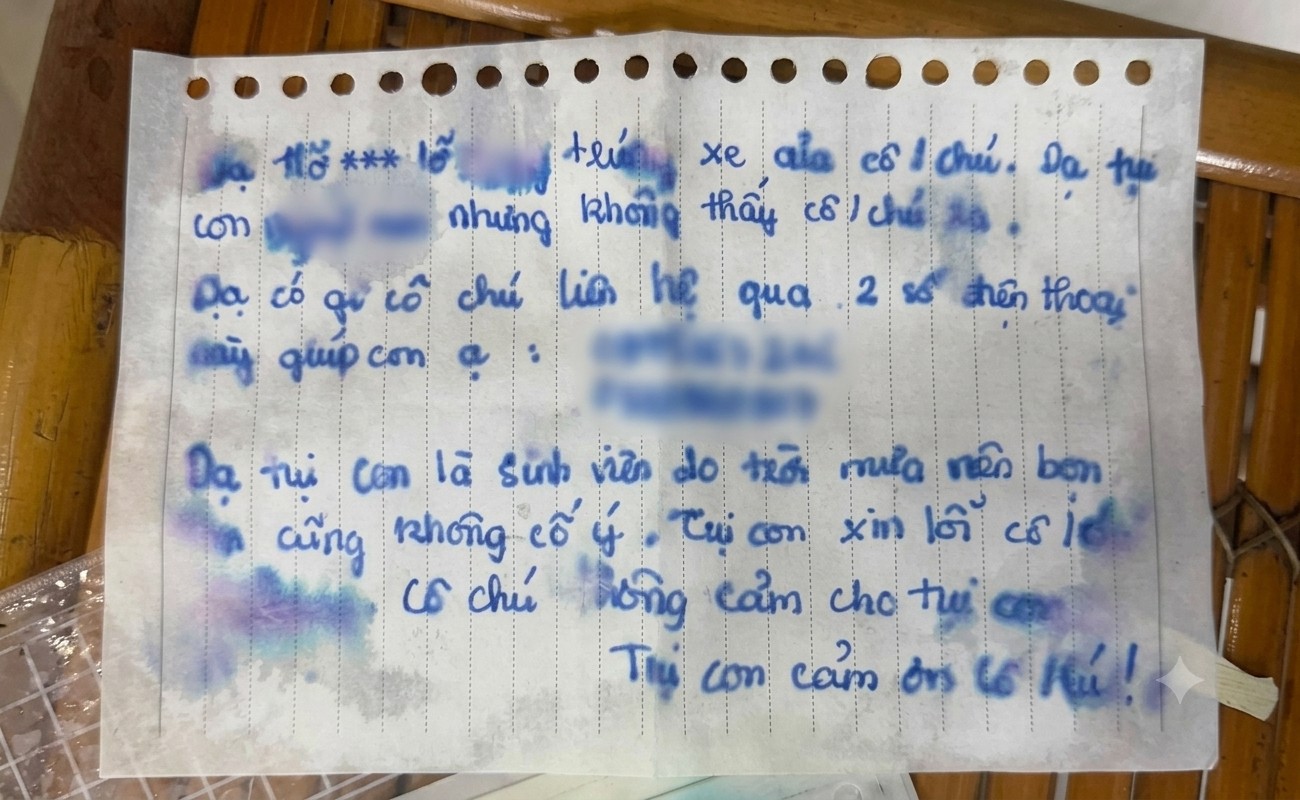 Dạ *** lỡ trúng xe của cô / chú. Dạ tụi
con nhưng không thấy cô / chú .
Dạ có gì cô chú liên hệ qua 2 số điện thoại
này giúp con ạ :
Dạ tụi con là sinh viên do trời mưa nên bọn
cũng không cố ý. Tụi con xin lỗi cô /
Cô chú thông cảm cho tụi con
Tụi con cảm ơn Cô chú!